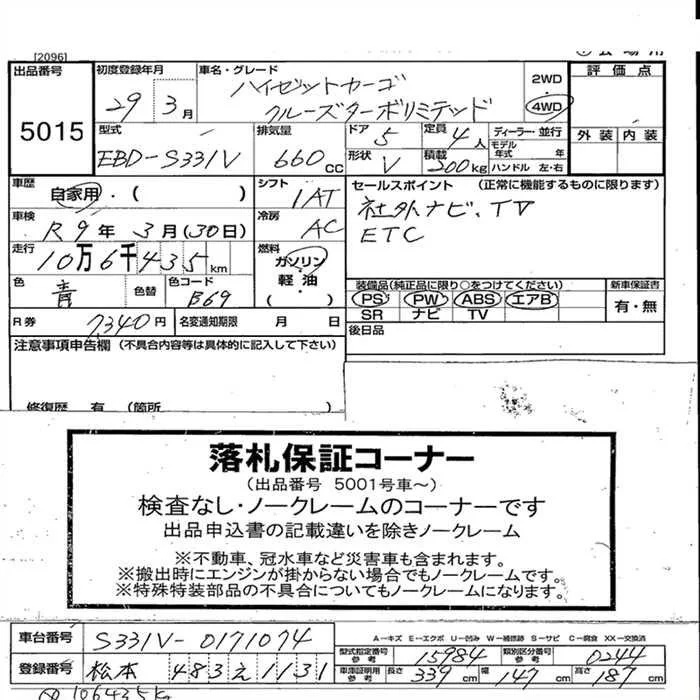 [2096]
出品番号 初度登録年月 車名・グレード 2WD 評価点
5015 29 3月 ハイゼットカーゴ
クルーズターボリミテッド 4WD
型式 排気量 ドア 5 定員 4人 ディーラー・並行 外装 内装
EBD-S331V 660cc 形状 V 積載 200kg モデル年式 年
ハンドル 左・右
車歴 自家用・( ) シフト 1AT セールスポイント (正常に機能するものに限ります)
車検 R9年3月(30日) 冷房 AC 社外ナビ、TV
ETC
走行 10万6千435km 燃料 ガソリン 軽油 ( )
色 青 色替 色コード B69 装備品(純正品に限り○をつけてください) 新車保証書
PS PW ABS エアB 有・無
SR ナビ TV
R券 7,340円 名変通知期限 月 日 後日品
注意事項申告欄 (不具合内容等は具体的に記入して下さい)
修復歴 有 (箇所 )
落札保証コーナー
(出品番号 5001号車~)
検査なし・ノークレームのコーナーです
出品申込書の記載違いを除きノークレーム
※不動車、冠水車など災害車も含まれます。
※搬出時にエンジンが掛からない場合でもノークレームです。
※特殊特装部品の不具合についてもノークレームになります。
車台番号 S331V-0171074 A-キズ E-エクボ U-凹み W-補修跡 S-サビ C-腐食 XX-交換済
型式指定番号 参考 15984 類別区分番号 参考 0244
登録番号 松本 483 え 1131 車庫証明用 参考 長さ 339cm 幅 147cm 高さ 187cm
106435k